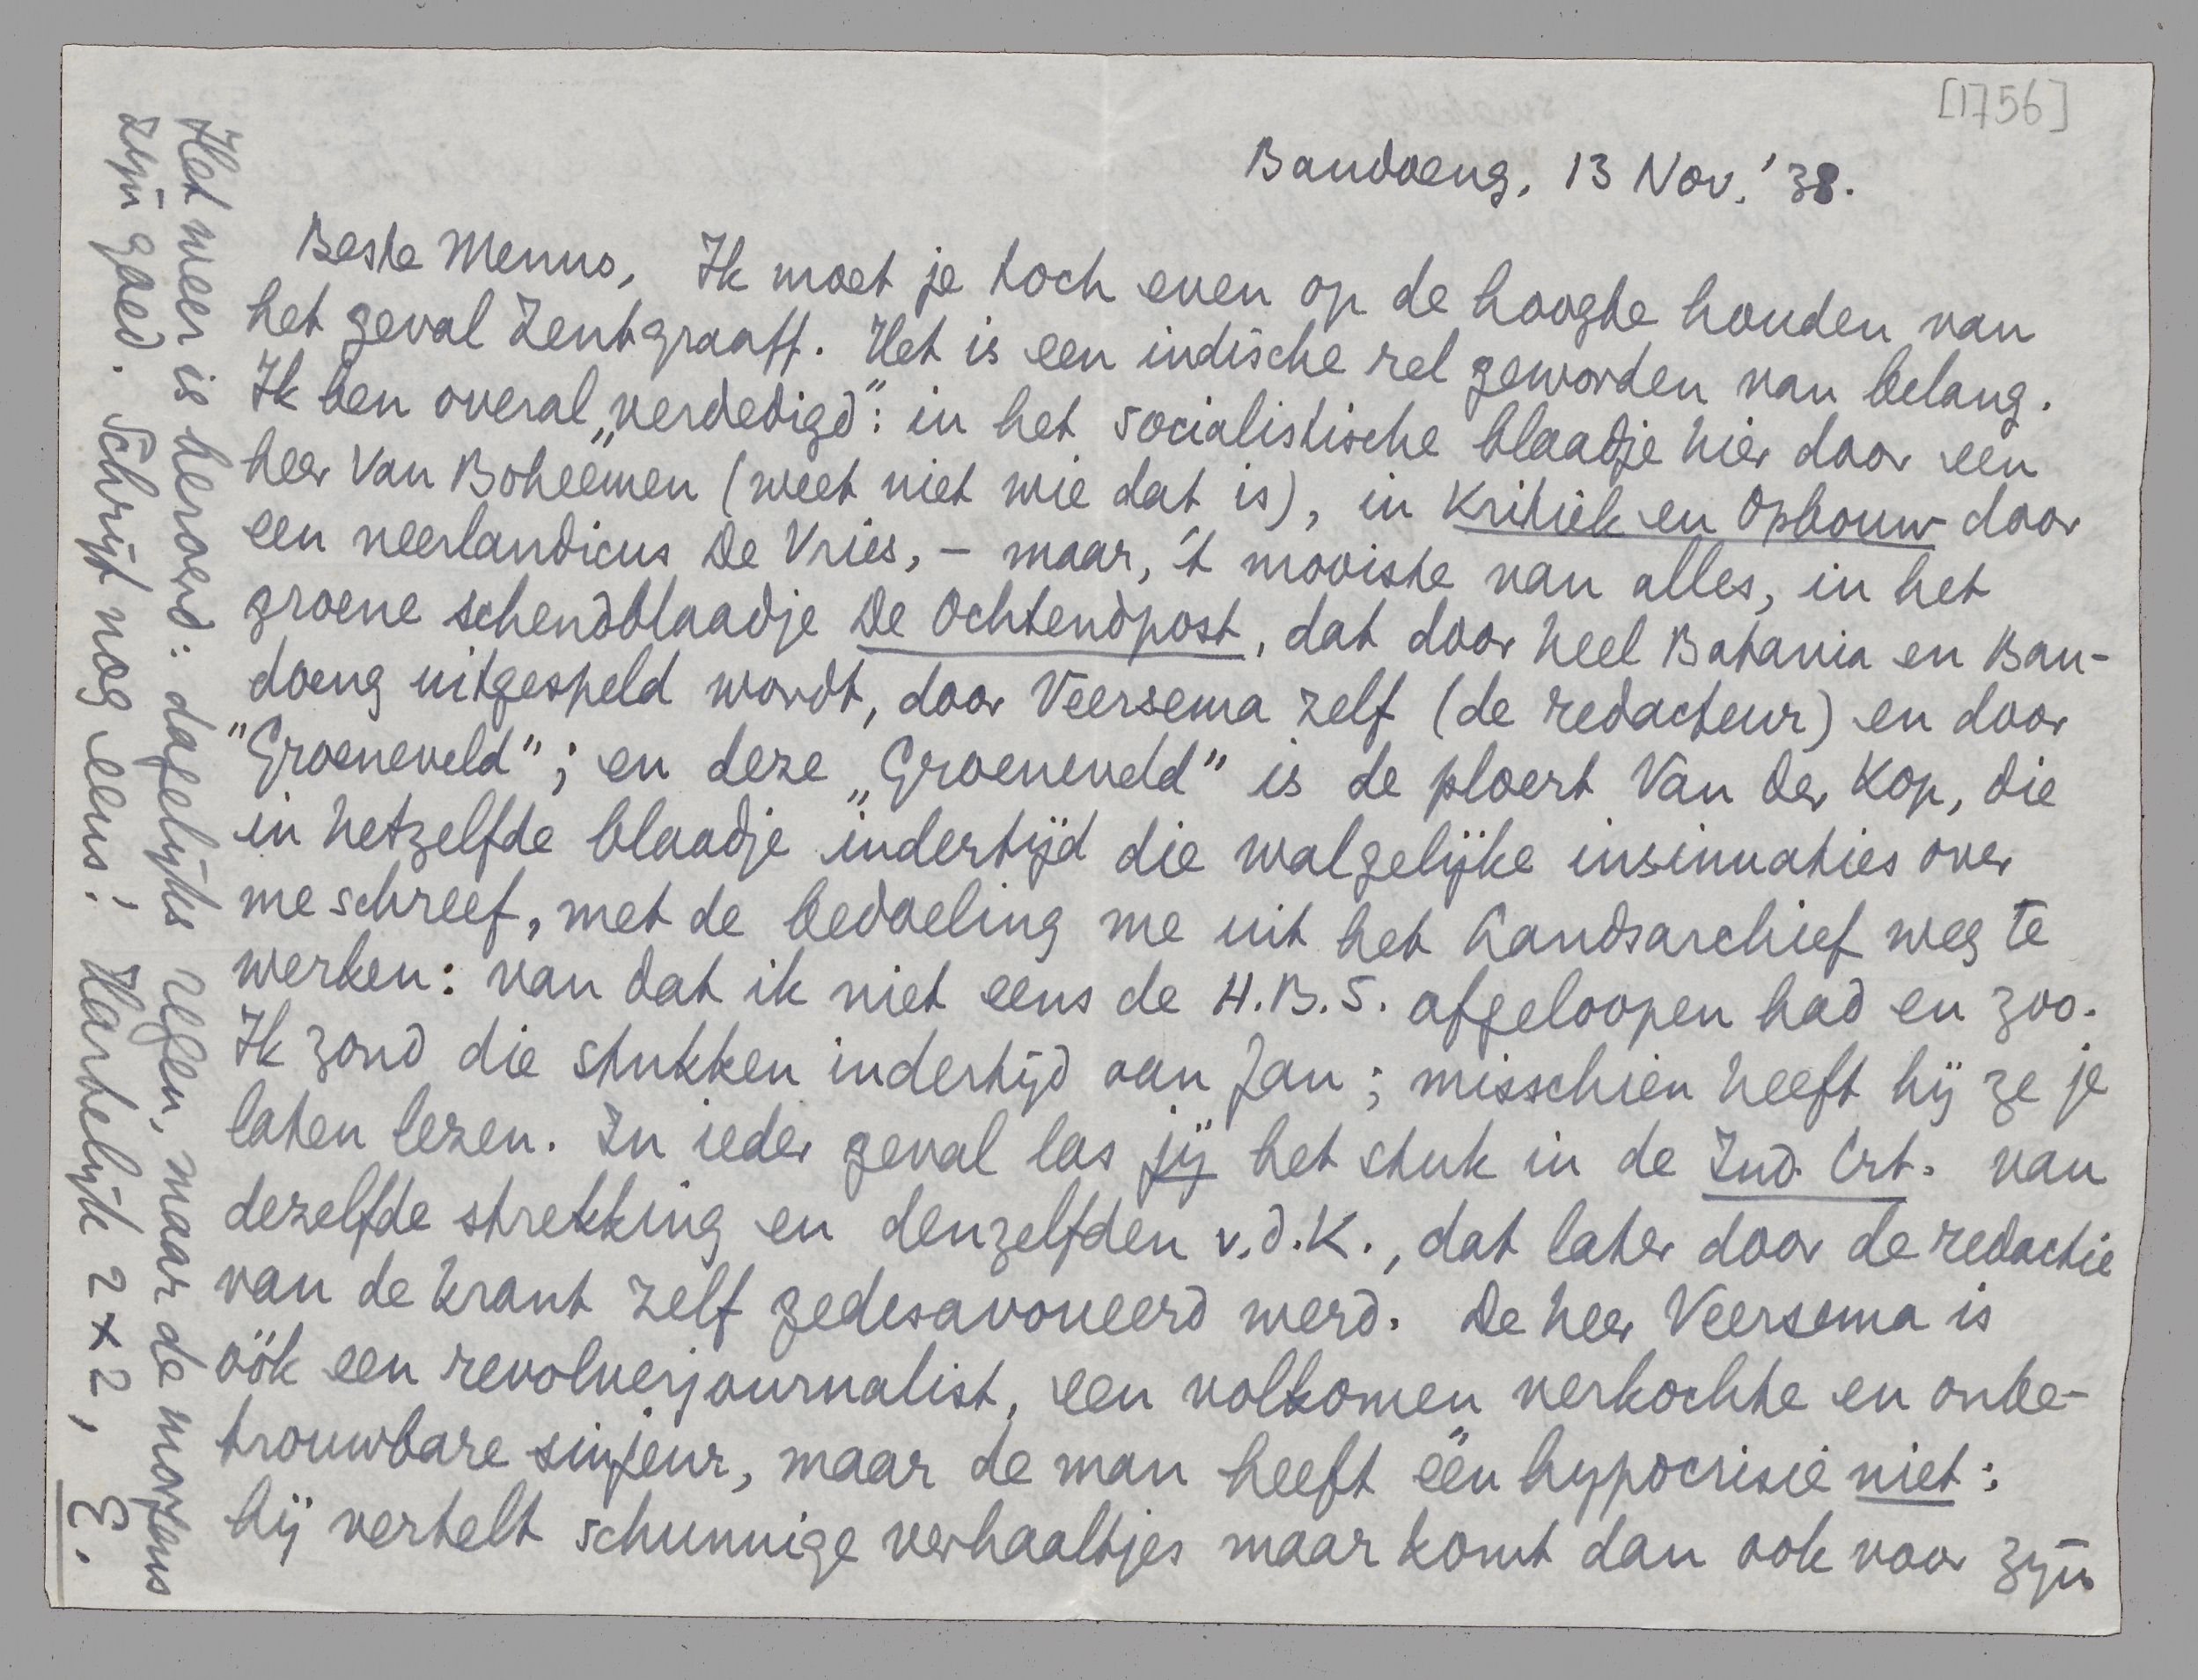 [1756]
Bandoeng, 13 Nov. '38.
Beste Menno, Ik moet je toch even op de hoogte houden van
het geval Zentgraaff. Het is een indische rel geworden van belang.
Ik ben overal „verdedigd”: in het socialistische blaadje hier door een
heer Van Boheemen (weet niet wie dat is), in Kritiek en Opbouw door
een neerlandicus De Vries, – maar, 't mooiste van alles, in het
groene schendblaadje De Ochtendpost, dat door heel Batavia en Ban-
doeng uitgespeld wordt, door Veersema zelf (de redacteur) en door
"Groeneveld"; en deze „Groeneveld” is de ploert Van der Kop, die
in hetzelfde blaadje indertijd die walgelijke insinuaties over
me schreef, met de bedoeling me uit het Landsarchief weg te
werken: van dat ik niet eens de H.B.S. afgeloopen had en zoo.
Ik zond die stukken indertijd aan Jan; misschien heeft hij ze je
laten lezen. In ieder geval las jij het stuk in de Ind. Crt. van
dezelfde strekking en denzelfden v.d.K., dat later door de redactie
van de krant zelf gedesavoueerd werd. De heer Veersema is
óók een revolverjournalist, een volkomen verkochte en onbe-
trouwbare sinjeur, maar de man heeft één hypocrisie niet:
hij vertelt schunnige verhaaltjes maar komt dan ook voor zijn
Het weer is beroerd: dagelijks regen, maar de morgens
zijn goed. Schrijf nog eens! Hartelijk 2 x 2, E.